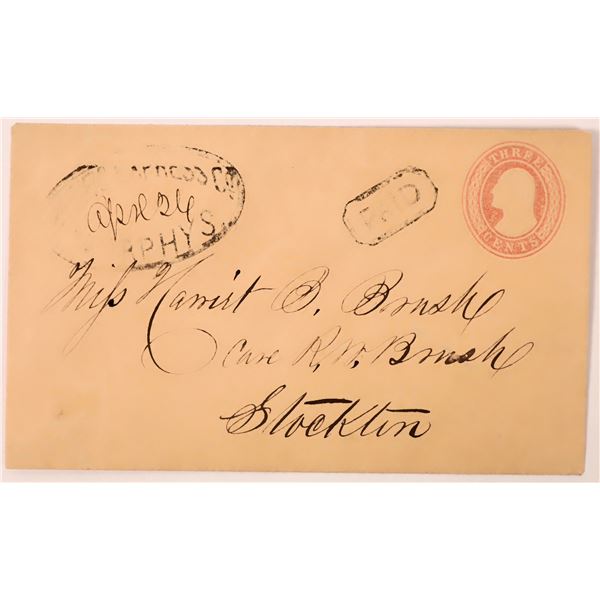 THREE
CENTS
PRESS CO
Apr 26
PHYS.
PAID
Miss Harriet B. Brush
Care R. W. Brush
Stockton